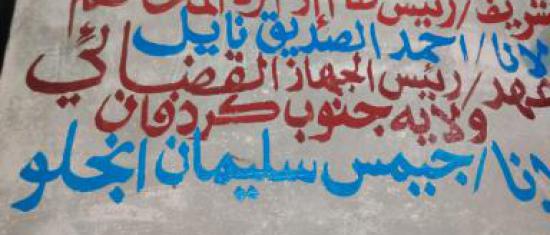 شريف/رئيس
لانا/احمد الصديق نايل
عهد/رئيس الجهاز القضائي
ولايه جنوب كردفان
لانا/جيمس سليمان انجلو